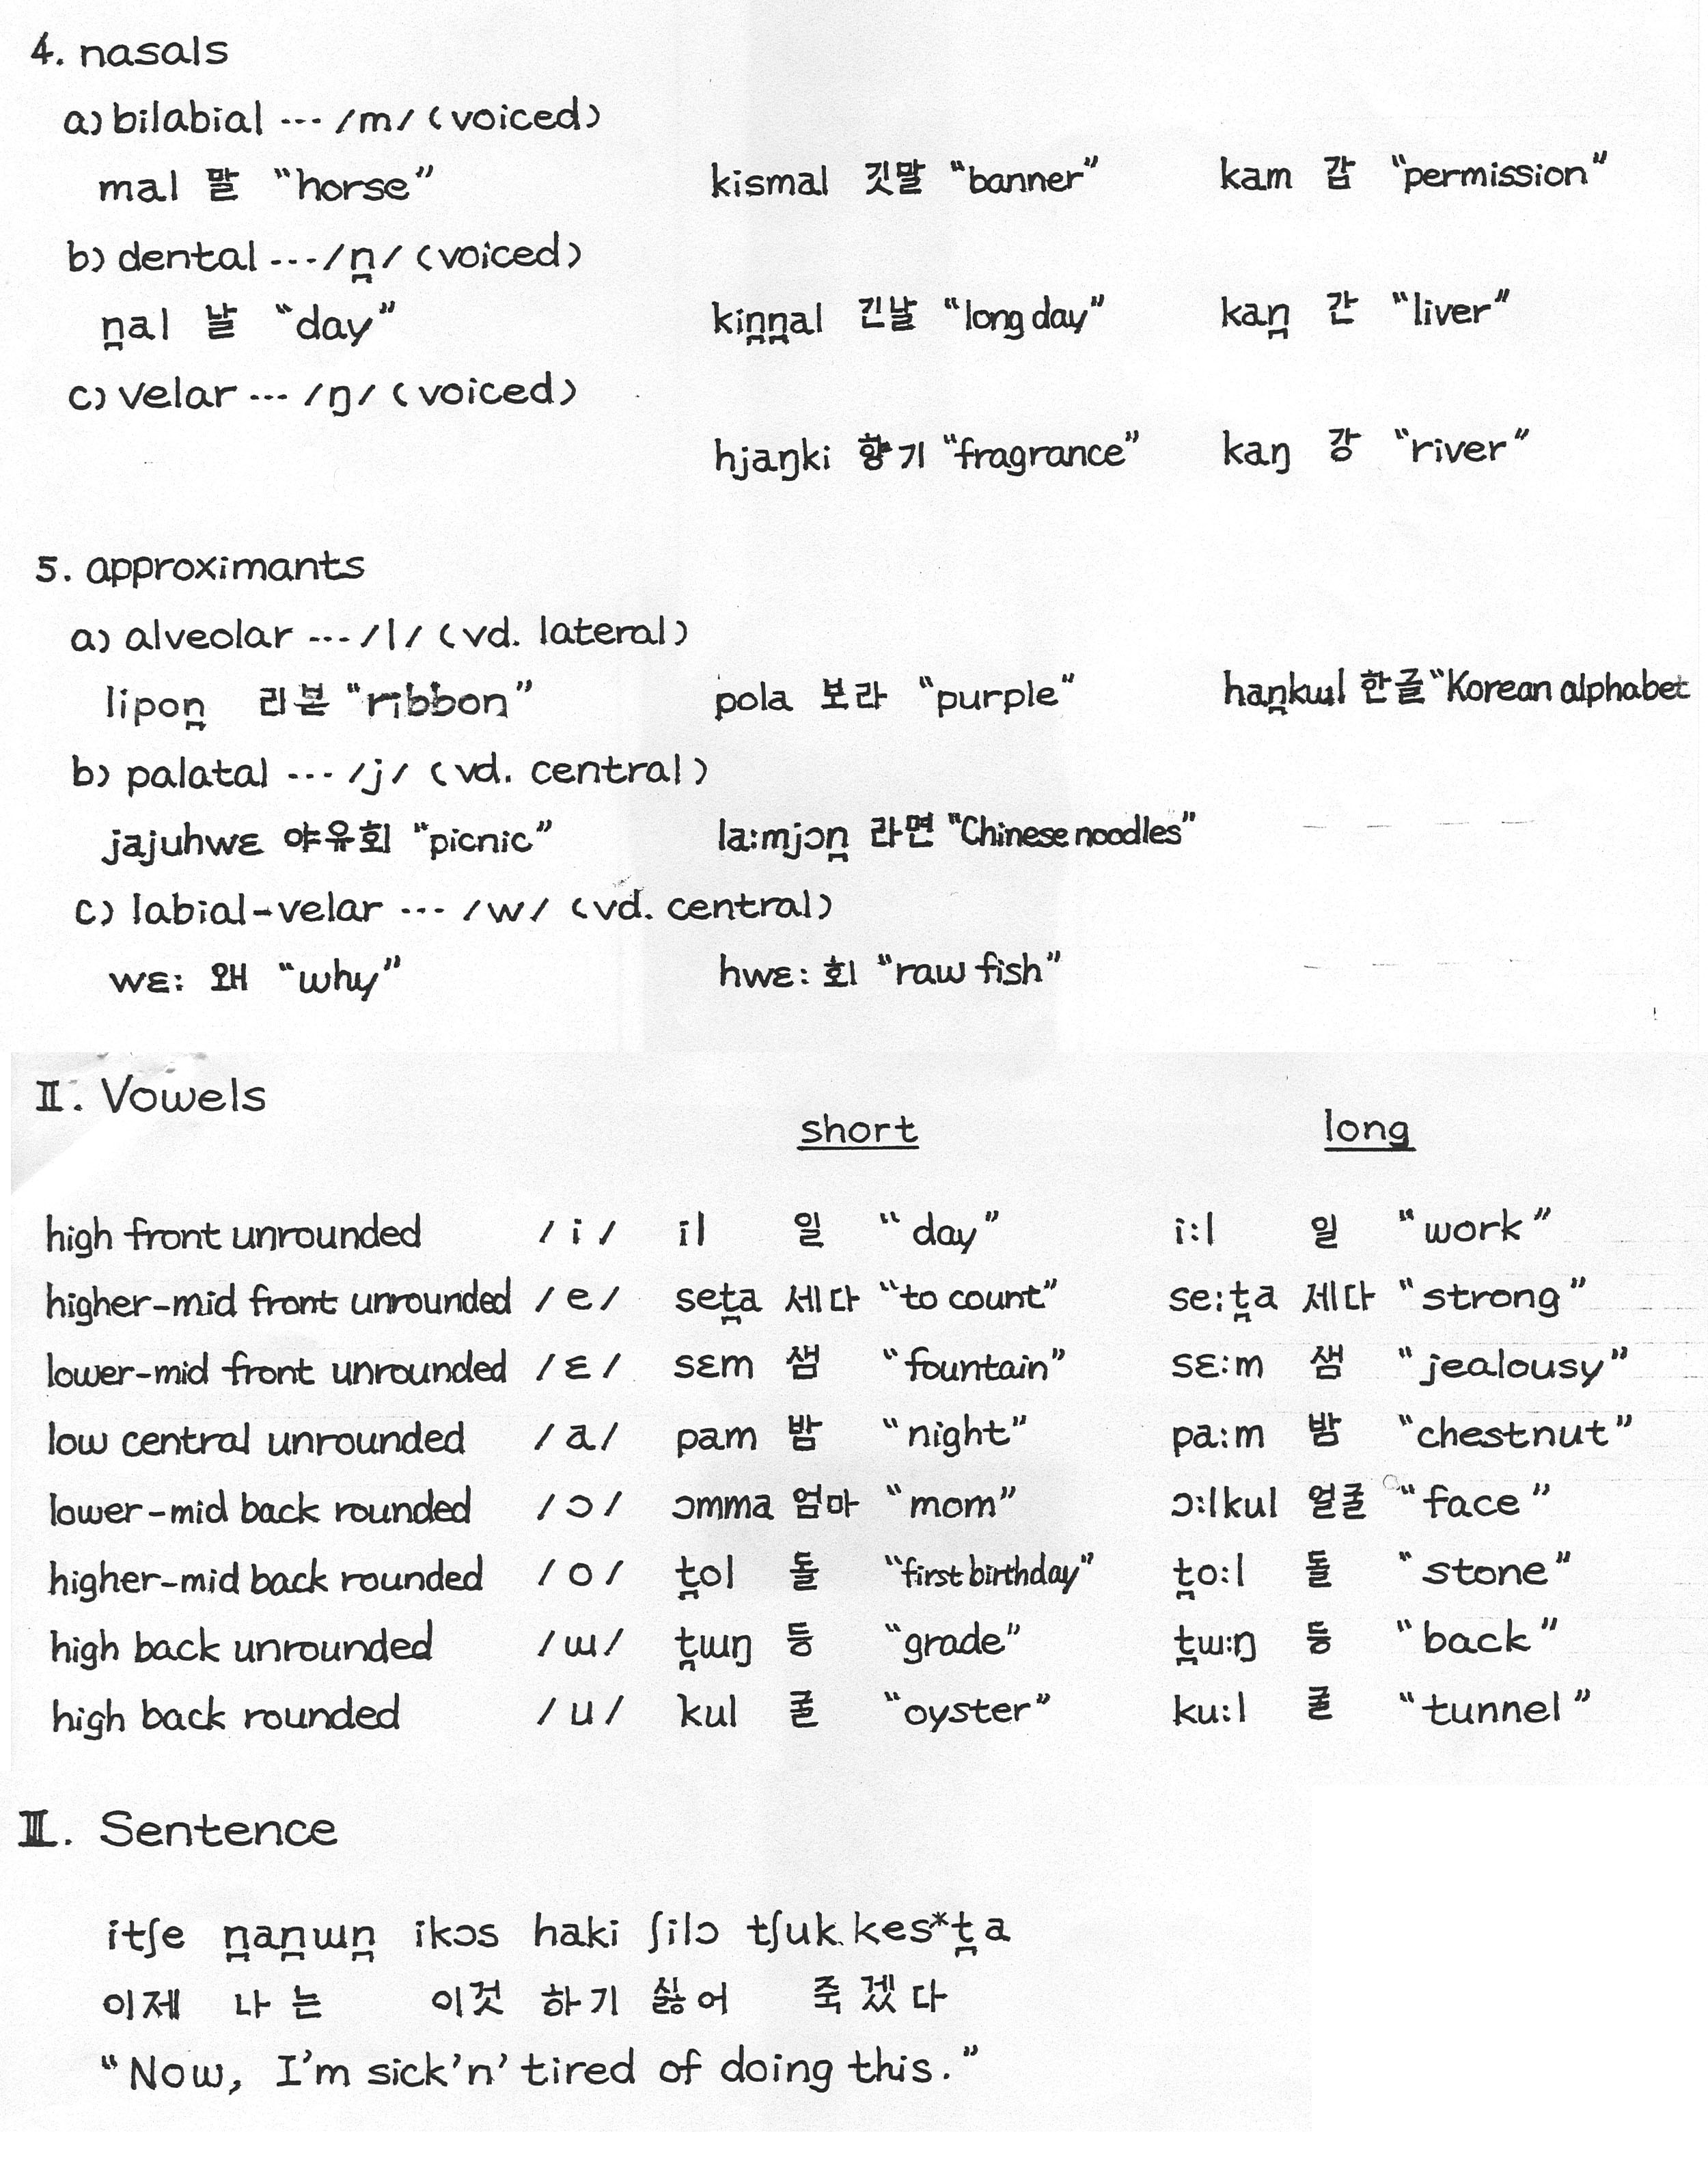 4. nasals
a) bilabial --- /m/ (voiced)
mal 말 "horse" kismal 깃말 "banner" kam 감 "permission"
b) dental --- /n̪/ (voiced)
n̪al 날 "day" kin̪n̪al 긴날 "long day" kan̪ 간 "liver"
c) velar --- /ŋ/ (voiced)
hjaŋki 향기 "fragrance" kaŋ 강 "river"
5. approximants
a) alveolar --- /l/ (vd. lateral)
lipon̪ 리본 "ribbon" pola 보라 "purple" han̪kɯl 한글 "Korean alphabet
b) palatal --- /j/ (vd. central)
jajuhwɛ 야유회 "picnic" la:mjɔn̪ 라면 "Chinese noodles" — — — —
c) labial-velar --- /w/ (vd. central)
wɛ: 왜 "why" hwɛ: 회 "raw fish"
II. Vowels
short long
high front unrounded /i/ il 일 "day" i:l 일 "work"
higher-mid front unrounded /e/ set̪a 세다 "to count" se:t̪a 세다 "strong"
lower-mid front unrounded /ɛ/ sɛm 샘 "fountain" sɛ:m 샘 "jealousy"
low central unrounded /a/ pam 밤 "night" pa:m 밤 "chestnut"
lower-mid back rounded /ɔ/ ɔmma 엄마 "mom" ɔ:lkul 얼굴 "face"
higher-mid back rounded /o/ t̪ol 돌 "first birthday" t̪o:l 돌 "stone"
high back unrounded /ɯ/ t̪ɯŋ 등 "grade" t̪ɯ:ŋ 등 "back"
high back rounded /u/ kul 굴 "oyster" ku:l 굴 "tunnel"
III. Sentence
itʃe n̪an̪ɯn̪ ikɔs haki ʃilɔ tʃuk kes*t̪a
이제 나는 이것 하기 싫어 죽겠다
"Now, I'm sick'n' tired of doing this."